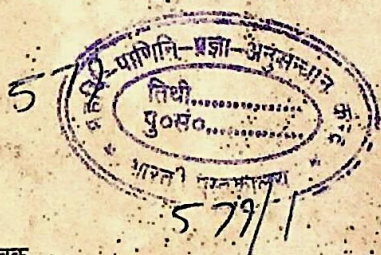 महर्षि-पाणिनि-प्रज्ञा-अनुसन्धान केन्द्र
तिथी..................
पु०सं०..................
भारती पुस्तकालय
579/1